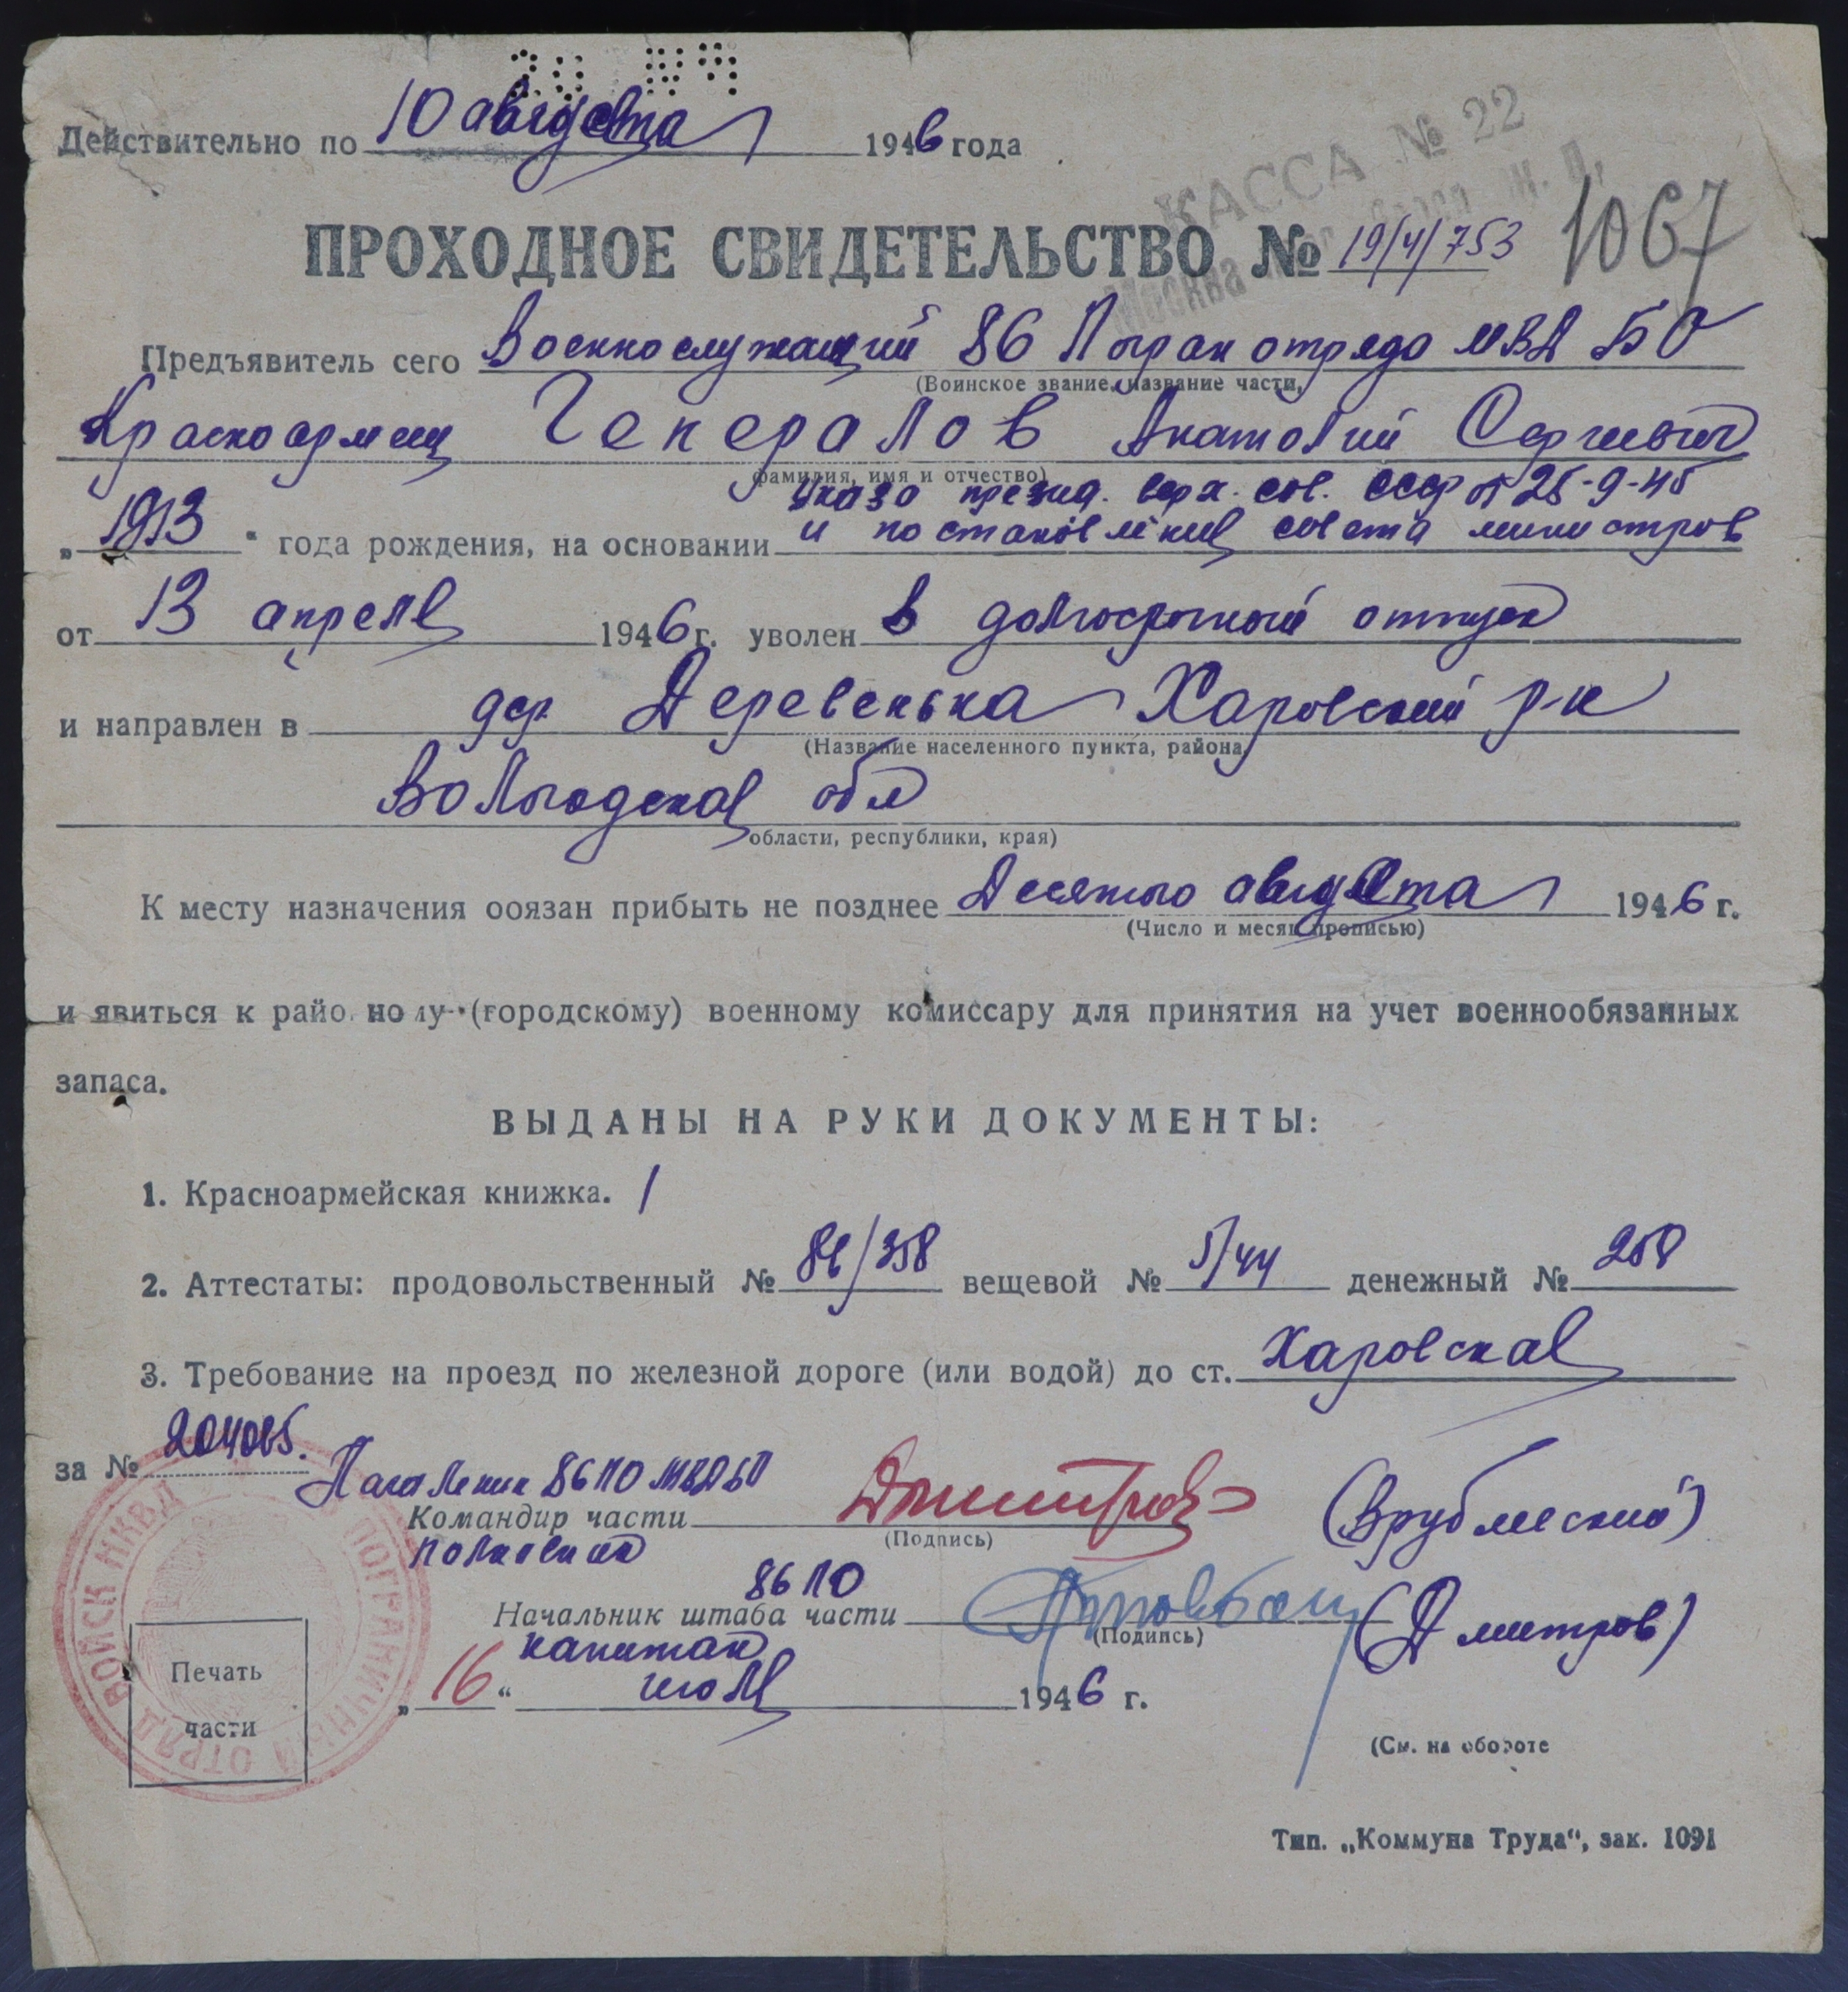 Действительно по 10 августа 1946 года
КАССА № 22
Москва
Ж. Д.
ПРОХОДНОЕ СВИДЕТЕЛЬСТВО № 19/4/753
1067
Предъявитель сего Военнослужащий 86 Погран отрядо МВД БО
(Воинское звание, название части,
Красноармеец Генералов Анатолий Сергиевич
фамилия, имя и отчество)
Указа презид. верх. сов. СССР от 25-9-45
„1913“ года рождения, на основании и постановления совета министров
от 13 апреля 1946 г. уволен в долгосрочный отпуск
и направлен в дер. Деревенька Харовский р-н
(Название населенного пункта, района,
Вологодская обл
области, республики, края)
К месту назначения обязан прибыть не позднее Десятого августа 1946 г.
(Число и месяц прописью)
и явиться к райо ному (городскому) военному комиссару для принятия на учет военнообязанных
запаса.
ВЫДАНЫ НА РУКИ ДОКУМЕНТЫ:
1. Красноармейская книжка. 1
2. Аттестаты: продовольственный № 86/358 вещевой № 5/44 денежный № 258
3. Требование на проезд по железной дороге (или водой) до ст. Харовская
за № 204065.
Началеник 86 ПО МВД БО
Командир части
(Подпись)
(Врублеский)
полковник
86 ПО
Начальник штаба части
(Подпись)
(Дмитров)
капитан
„16“ июля 1946 г.
ПОГРАНИЧНЫЙ ОТРЯД ВОЙСК НКВД
Печать
части
(См. на обороте
Тип. „Коммуна Труда“, зак. 1091